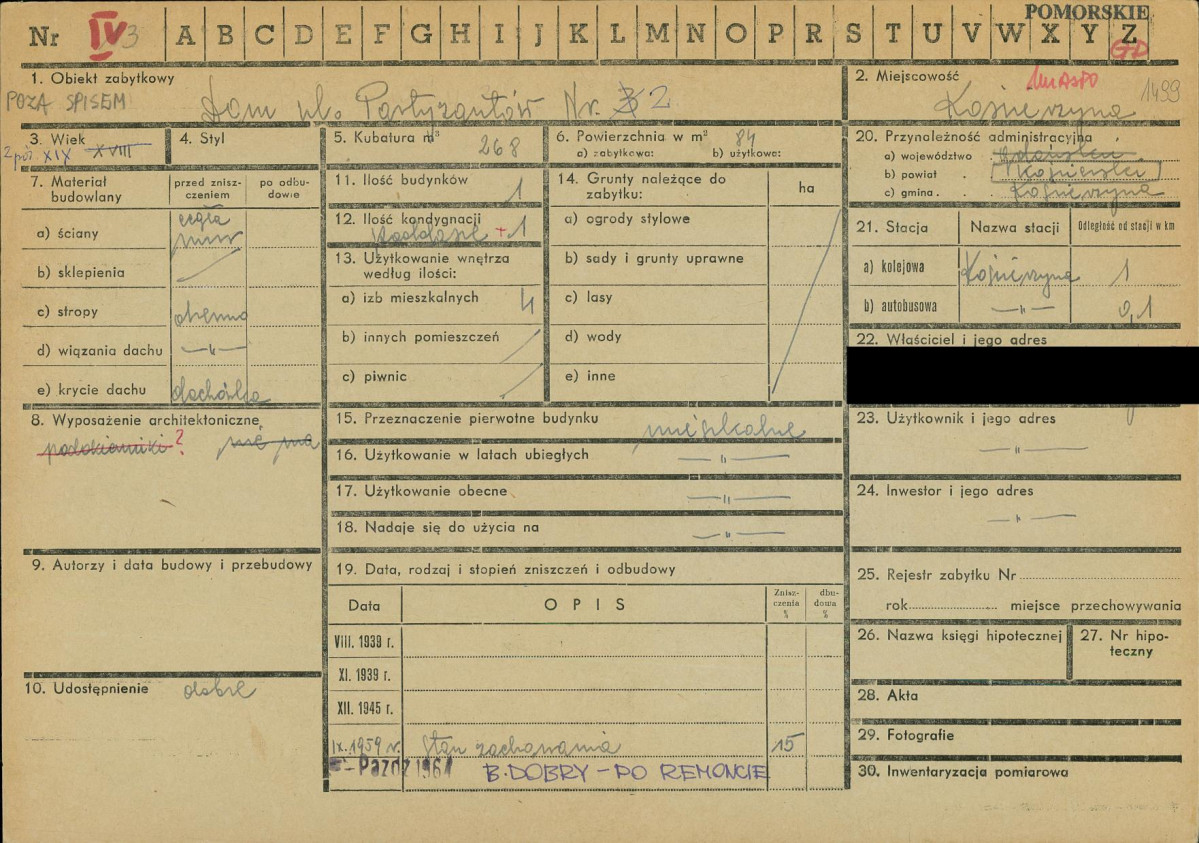 POMORSKIE
Nr IV 3 A B C D E F G H I J K L M N O P R S T U V W X Y Z
GD
1. Obiekt zabytkowy
POZA SPISEM
Dom ul. Partyzantów Nr. 2
2. Miejscowość
MIASTO
Kościerzyna
1499
3. Wiek
2 poł. XIX XVIII
4. Styl
5. Kubatura m³ 268
6. Powierzchnia w m² 84
a) zabytkowa: b) użytkowa:
7. Materiał budowlany
przed zniszczeniem
po odbudowie
a) ściany cegła mur
b) sklepienia
c) stropy drewno
d) wiązania dachu —"—
e) krycie dachu dachówka
8. Wyposażenie architektoniczne
?
nie ma
9. Autorzy i data budowy i przebudowy
10. Udostępnienie dobre
11. Ilość budynków 1
12. Ilość kondygnacji
poddasze + 1
13. Użytkowanie wnętrza według ilości:
a) izb mieszkalnych 4
b) innych pomieszczeń
c) piwnic
14. Grunty należące do zabytku:
ha
a) ogrody stylowe
b) sady i grunty uprawne
c) lasy
d) wody
e) inne
15. Przeznaczenie pierwotne budynku mieszkalne
16. Użytkowanie w latach ubiegłych —"—
17. Użytkowanie obecne —"—
18. Nadaje się do użycia na —"—
19. Data, rodzaj i stopień zniszczeń i odbudowy
Data
OPIS
Zniszczenia %
dbudowa %
VIII. 1939 r.
XI. 1939 r.
XII. 1945 r.
IX. 1959 r. Stan zachowania 15
Paźdz 1964 B. DOBRY - PO REMONCIE
20. Przynależność administracyjna
a) województwo . gdańskie
b) powiat . Kościerski
c) gmina . Kościerzyna
21. Stacja
Nazwa stacji
Odległość od stacji w km
a) kolejowa Kościerzyna 1
b) autobusowa —"— 0,1
22. Właściciel i jego adres
23. Użytkownik i jego adres
—"—
24. Inwestor i jego adres
—"—
25. Rejestr zabytku Nr
rok miejsce przechowywania
26. Nazwa księgi hipotecznej
27. Nr hipoteczny
28. Akta
29. Fotografie
30. Inwentaryzacja pomiarowa